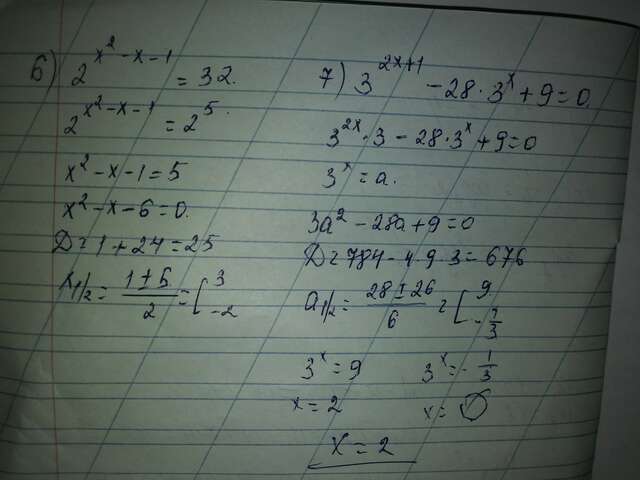 6) 2^{x² - x - 1} = 32.
2^{x² - x - 1} = 2^5.
x² - x - 1 = 5
x² - x - 6 = 0.
D = 1 + 24 = 25
x_{1/2} = \frac{1 ± 5}{2} = [ 3
-2
7) 3^{2x+1} - 28 · 3^x + 9 = 0
3^{2x} · 3 - 28 · 3^x + 9 = 0
3^x = a.
3a² - 28a + 9 = 0
D = 784 - 4 · 9 · 3 = 676
a_{1/2} = \frac{28 ± 26}{6} = [ 9
-\frac{1}{3}
3^x = 9 3^x = -\frac{1}{3}
x = 2 x = ∅
x = 2